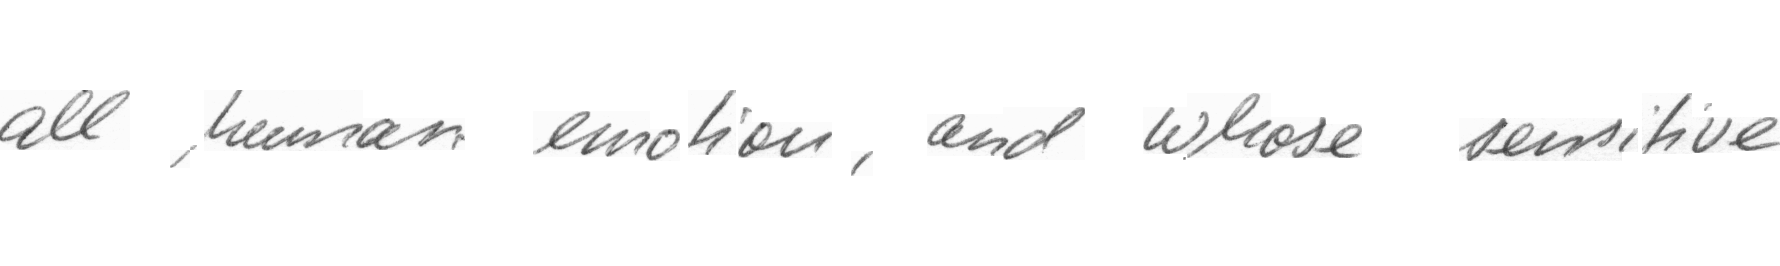 all , human emotion , and whose sensitive